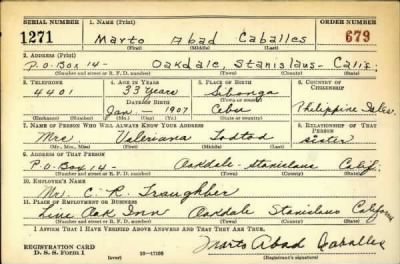 SERIAL NUMBER 1. NAME (Print) ORDER NUMBER
1271 Marto Abad Caballes 679
(First) (Middle) (Last)
2. ADDRESS (Print)
P.O. Box 14- Oakdale, Stanislaus- Calif.
(Number and street or R. F. D. number) (Town) (County) (State)
3. TELEPHONE 4. AGE IN YEARS 5. PLACE OF BIRTH 6. COUNTRY OF CITIZENSHIP
4401 33 years Sibonga
DATE OF BIRTH (Town or county)
Jan. 1907 Cebu Philippine Isles.
(Exchange) (Number) (Mo.) (Day) (Yr.) (State or country)
7. NAME OF PERSON WHO WILL ALWAYS KNOW YOUR ADDRESS 8. RELATIONSHIP OF THAT PERSON
Mrs Valeriana Todtod sister
(Mr., Mrs., Miss) (First) (Middle) (Last)
9. ADDRESS OF THAT PERSON
P.O. Box 14- Oakdale- Stanislaus Calif.
(Number and street or R. F. D. number) (Town) (County) (State)
10. EMPLOYER'S NAME
Mr. C. R. Traughber
11. PLACE OF EMPLOYMENT OR BUSINESS
Live Oak Inn Oakdale Stanislaus California
(Number and street or R. F. D. number) (Town) (County) (State)
I AFFIRM THAT I HAVE VERIFIED ABOVE ANSWERS AND THAT THEY ARE TRUE.
REGISTRATION CARD Marto Abad Caballes
D. S. S. Form 1 (over) (Registrant's signature)